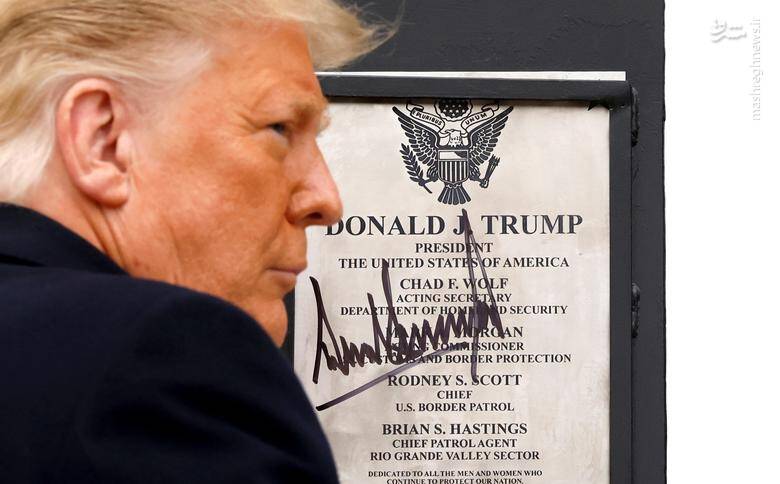 PLURIBUS UNUM
DONALD J. TRUMP
PRESIDENT
THE UNITED STATES OF AMERICA
CHAD F. WOLF
ACTING SECRETARY
DEPARTMENT OF HOMELAND SECURITY
MORGAN
COMMISSIONER
CUSTOMS AND BORDER PROTECTION
RODNEY S. SCOTT
CHIEF
U.S. BORDER PATROL
BRIAN S. HASTINGS
CHIEF PATROL AGENT
RIO GRANDE VALLEY SECTOR
DEDICATED TO ALL THE MEN AND WOMEN WHO
CONTINUE TO PROTECT OUR NATION.
mashreghnews.ir